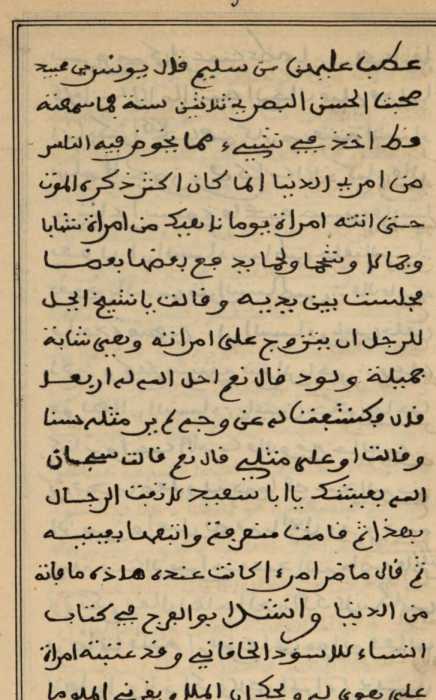 عكبا عليهن من سليم قال يونس بن عبيد
صحبنا الحسن البصرية ثلاثين سنة فما سمعته
قط اخذ في شيء مما يخوض فيه الناس
من امر الدنيا انما كان اكثر ذكره الموت
حتى اتته امراة يوما ناهيك من امراة شبابا
وجمالا وشحما ولحما يدفع بعضها بعضا
فجلست بين يديه وقالت يا شيخ ايحل
للرجل ان يتزوج على امراته وهي شابة
جميلة ولود قال نعم احل الله له اربعا
قال فكشفت له عن وجه لم ير مثله حسنا
وقالت او على مثلي قال نعم قالت سبحان
الله بعيشك يا ابا سعيد لا تفت الرجال
بهذا ثم قامت منصرفة واتبعها بعينيه
ثم قال ما ضر امرءا كانت عنده هاذه ما فاته
من الدنيا وانشد ابو الفرج في كتاب
النساء للاسود الخافاني وقد عتبته امراة
على